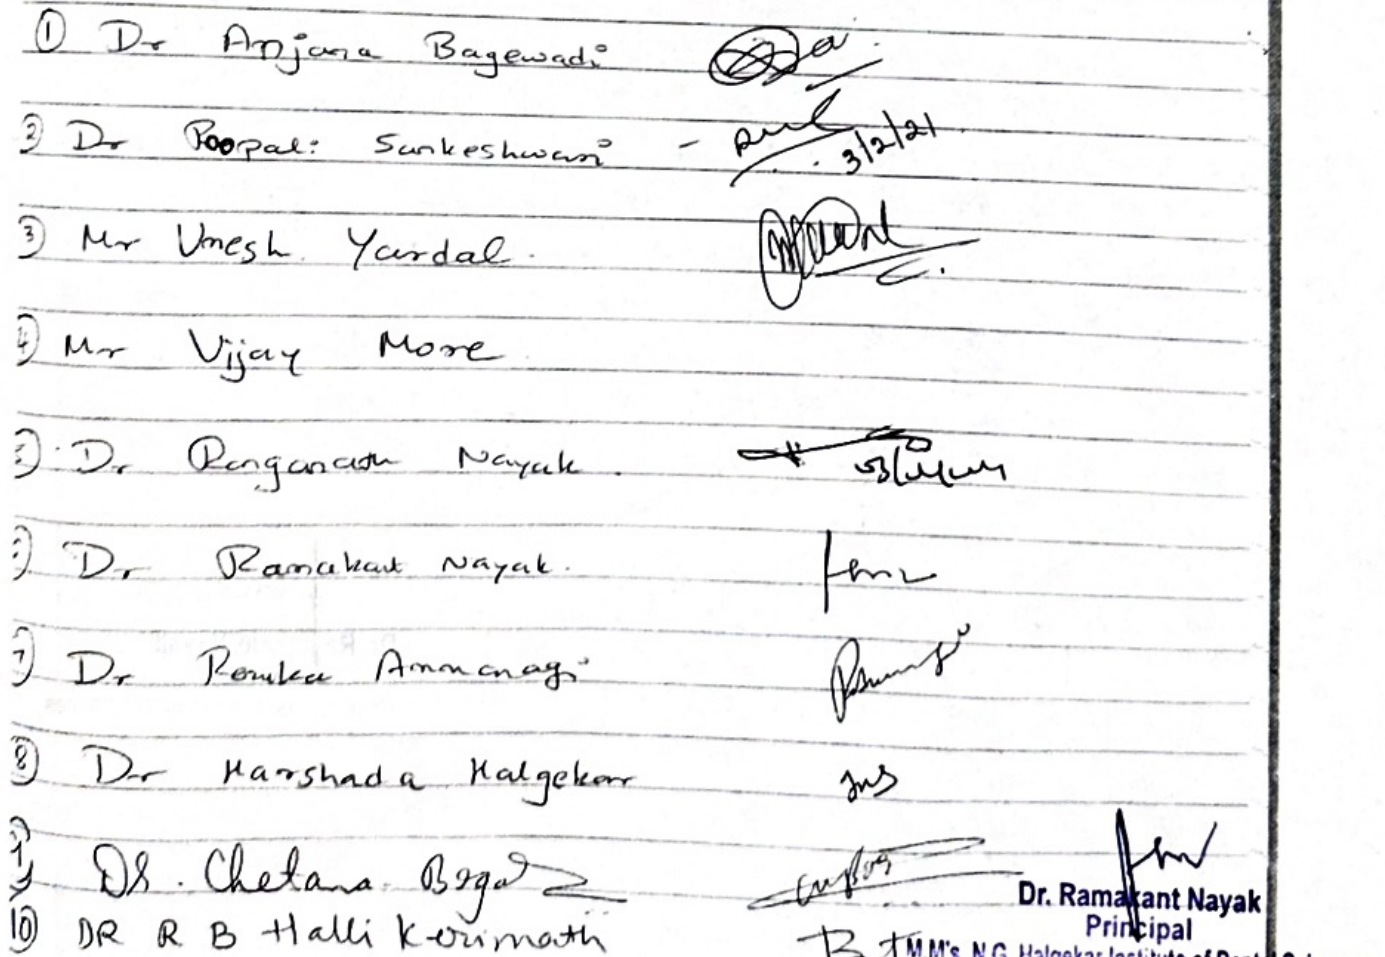 ① Dr Anjana Bagewadi
② Dr Roopali Sankeshwari - 3/2/21
③ Mr Umesh Yardal.
④ Mr Vijay More
⑤ Dr Ranganath Nayak.
Dr Ramakant Nayak.
7 Dr Renuka Ammanagi
⑧ Dr Harshada Halgekar
Dr. Chetana
10 DR R B Halli Kerimath
Dr. Ramakant Nayak
Principal
M.M's. N.G. Halgekar Institute of